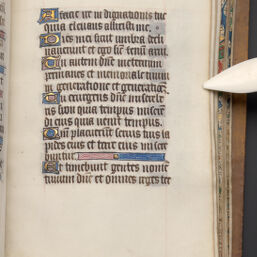 A facie ire indignationis tue
quia eleuans allisisti me.
Dies mei sicut umbra decli
nauerunt et ego sic̄ fenū arui.
Tu autem dn̄e in eternum
permanes et memoriale tuum
in generatione et generationē
Tu exurgens dn̄e misereberis
sion quia tempus miseren
di eius quia uenit tempus.
Qm̄ placuerunt seruis tuis la
pides eius et terre eius misere
buntur
Et timebunt gentes nomē
tuum dn̄e et omnes reges ter